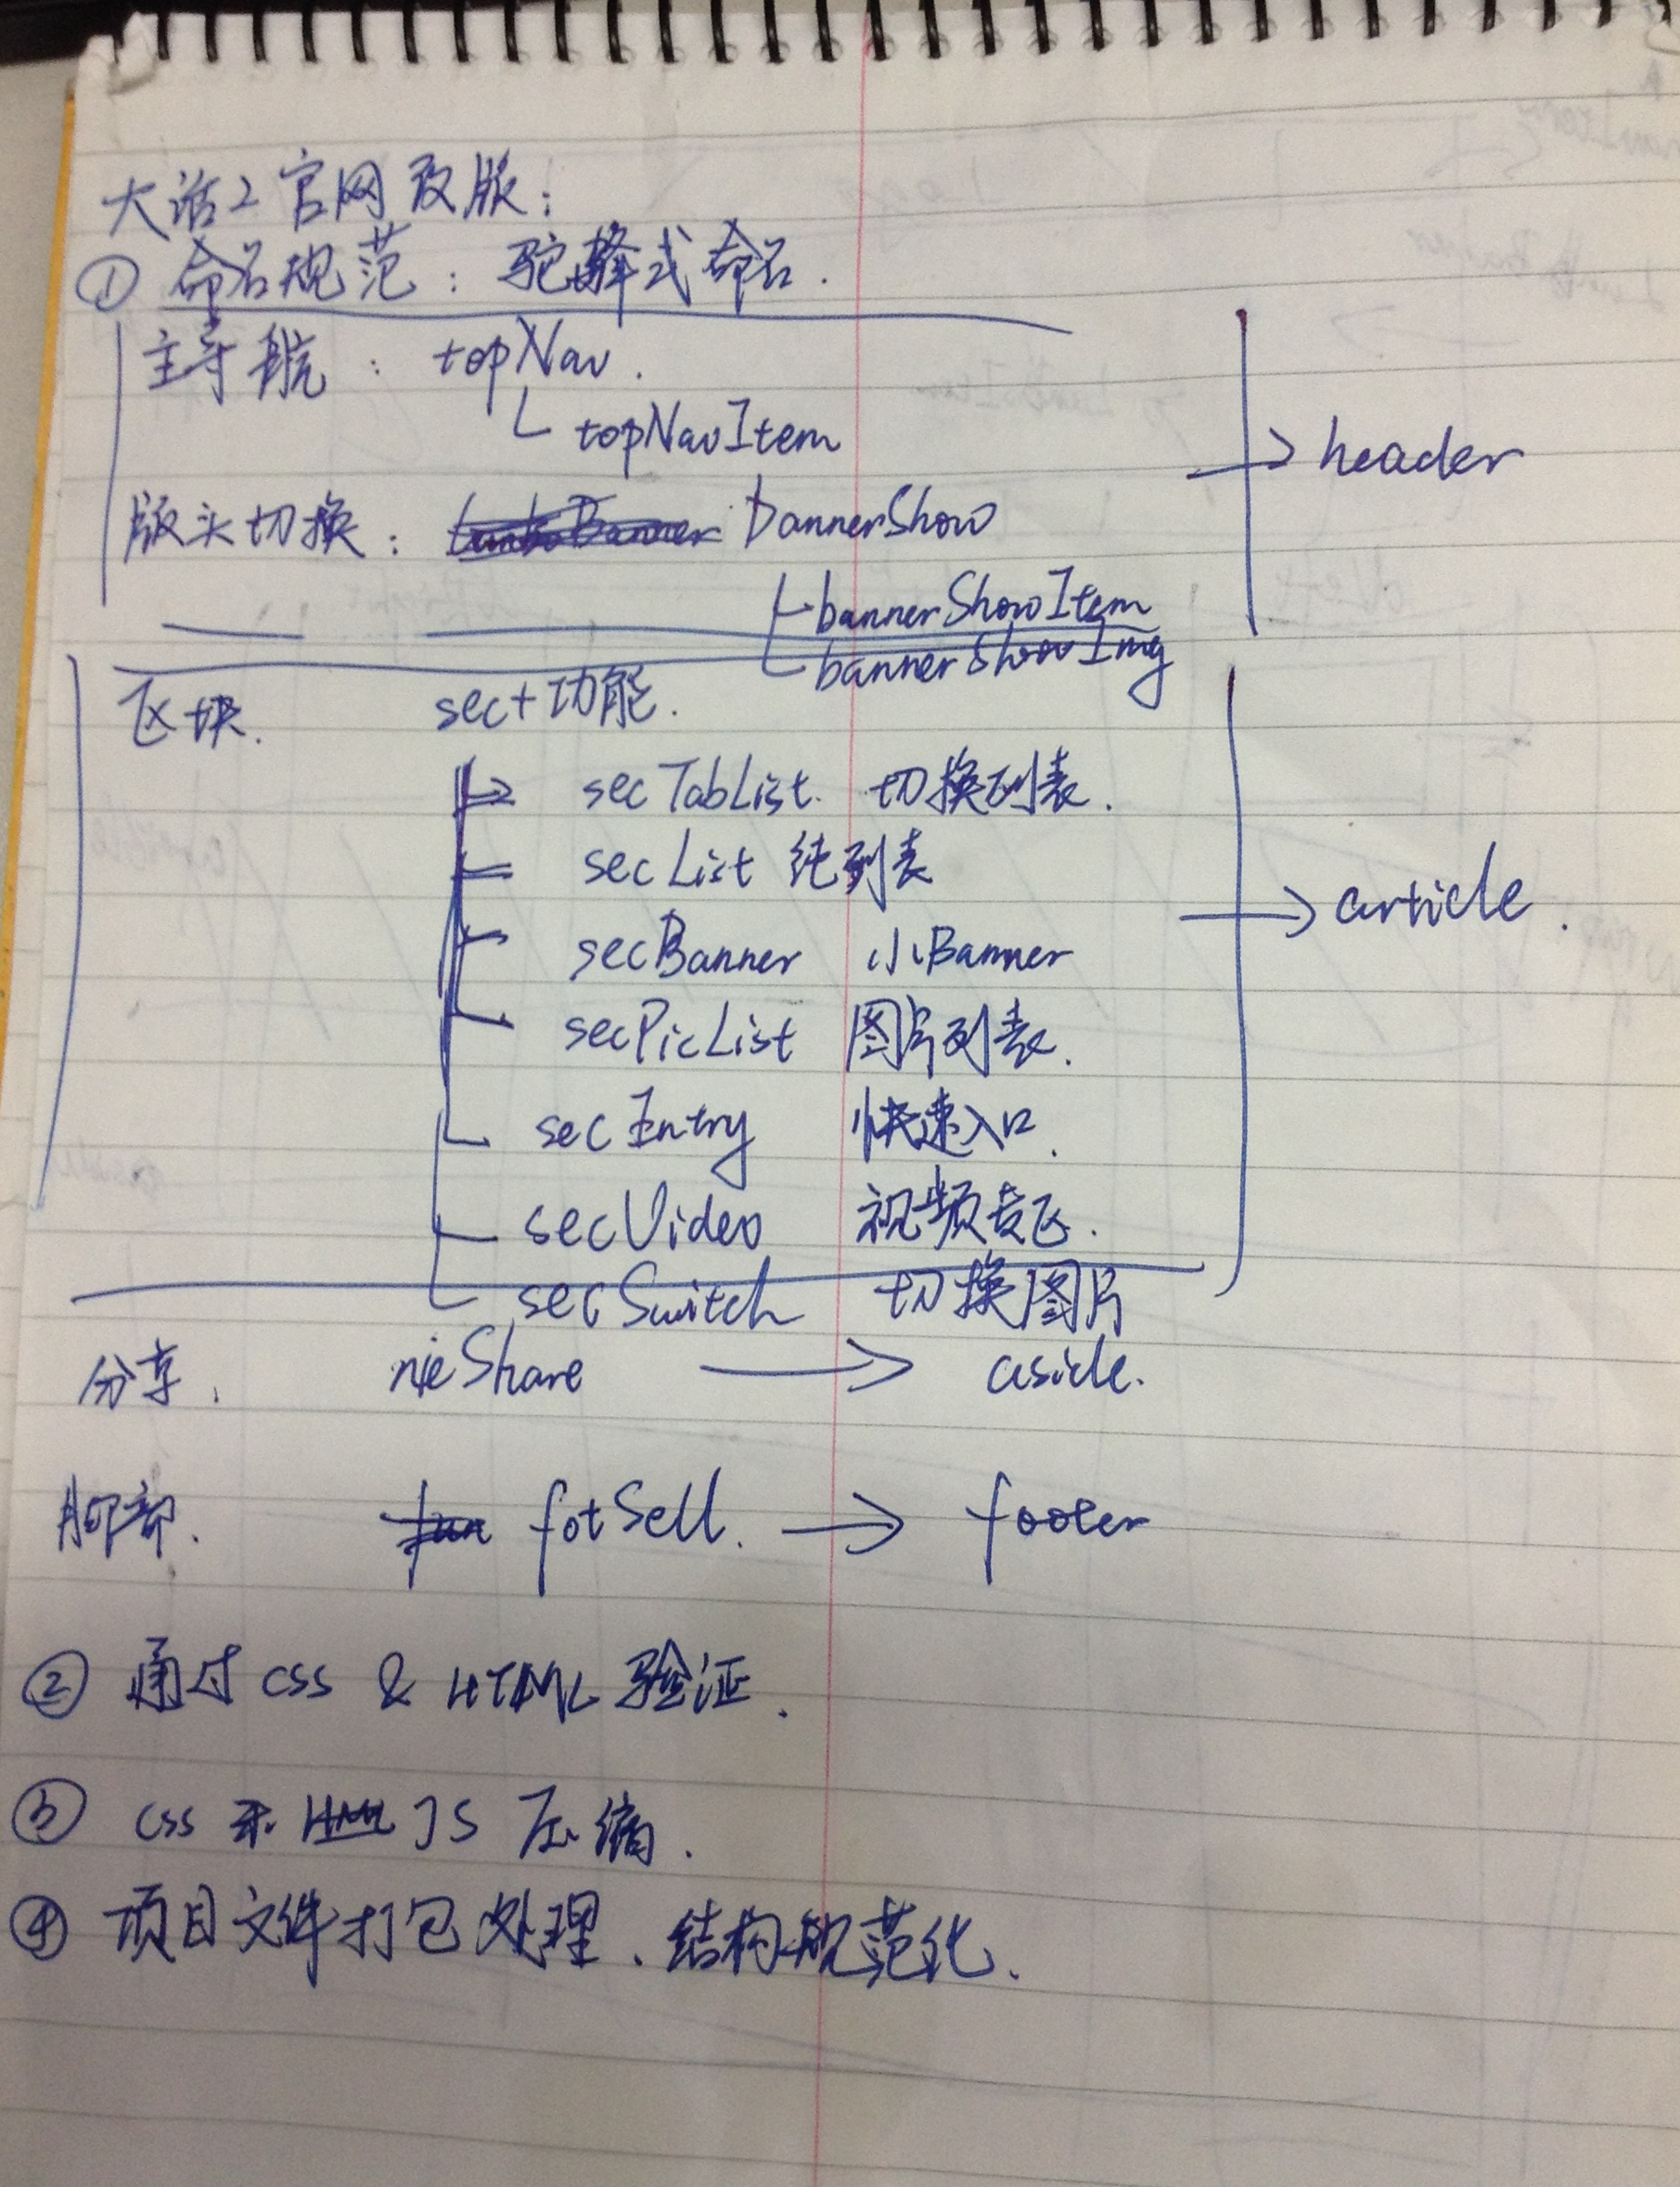 大话2官网改版:
① 命名规范: 驼峰式命名.
主导航: topNav.
topNavItem
→ header
版头切换: bannerShow
bannerShowItem
bannerShowImg
区块. sec+功能.
secTabList. 切换列表.
secList 纯列表
→ article.
secBanner 小Banner
secPicList 图片列表.
secEntry 快速入口.
secVideo 视频专区.
secSwitch 切换图片
分享. nieShare → aside.
脚部. fotSell. → footer
② 通过 CSS & HTML 验证.
③ CSS 和 JS 压缩.
④ 项目文件打包处理、结构规范化.